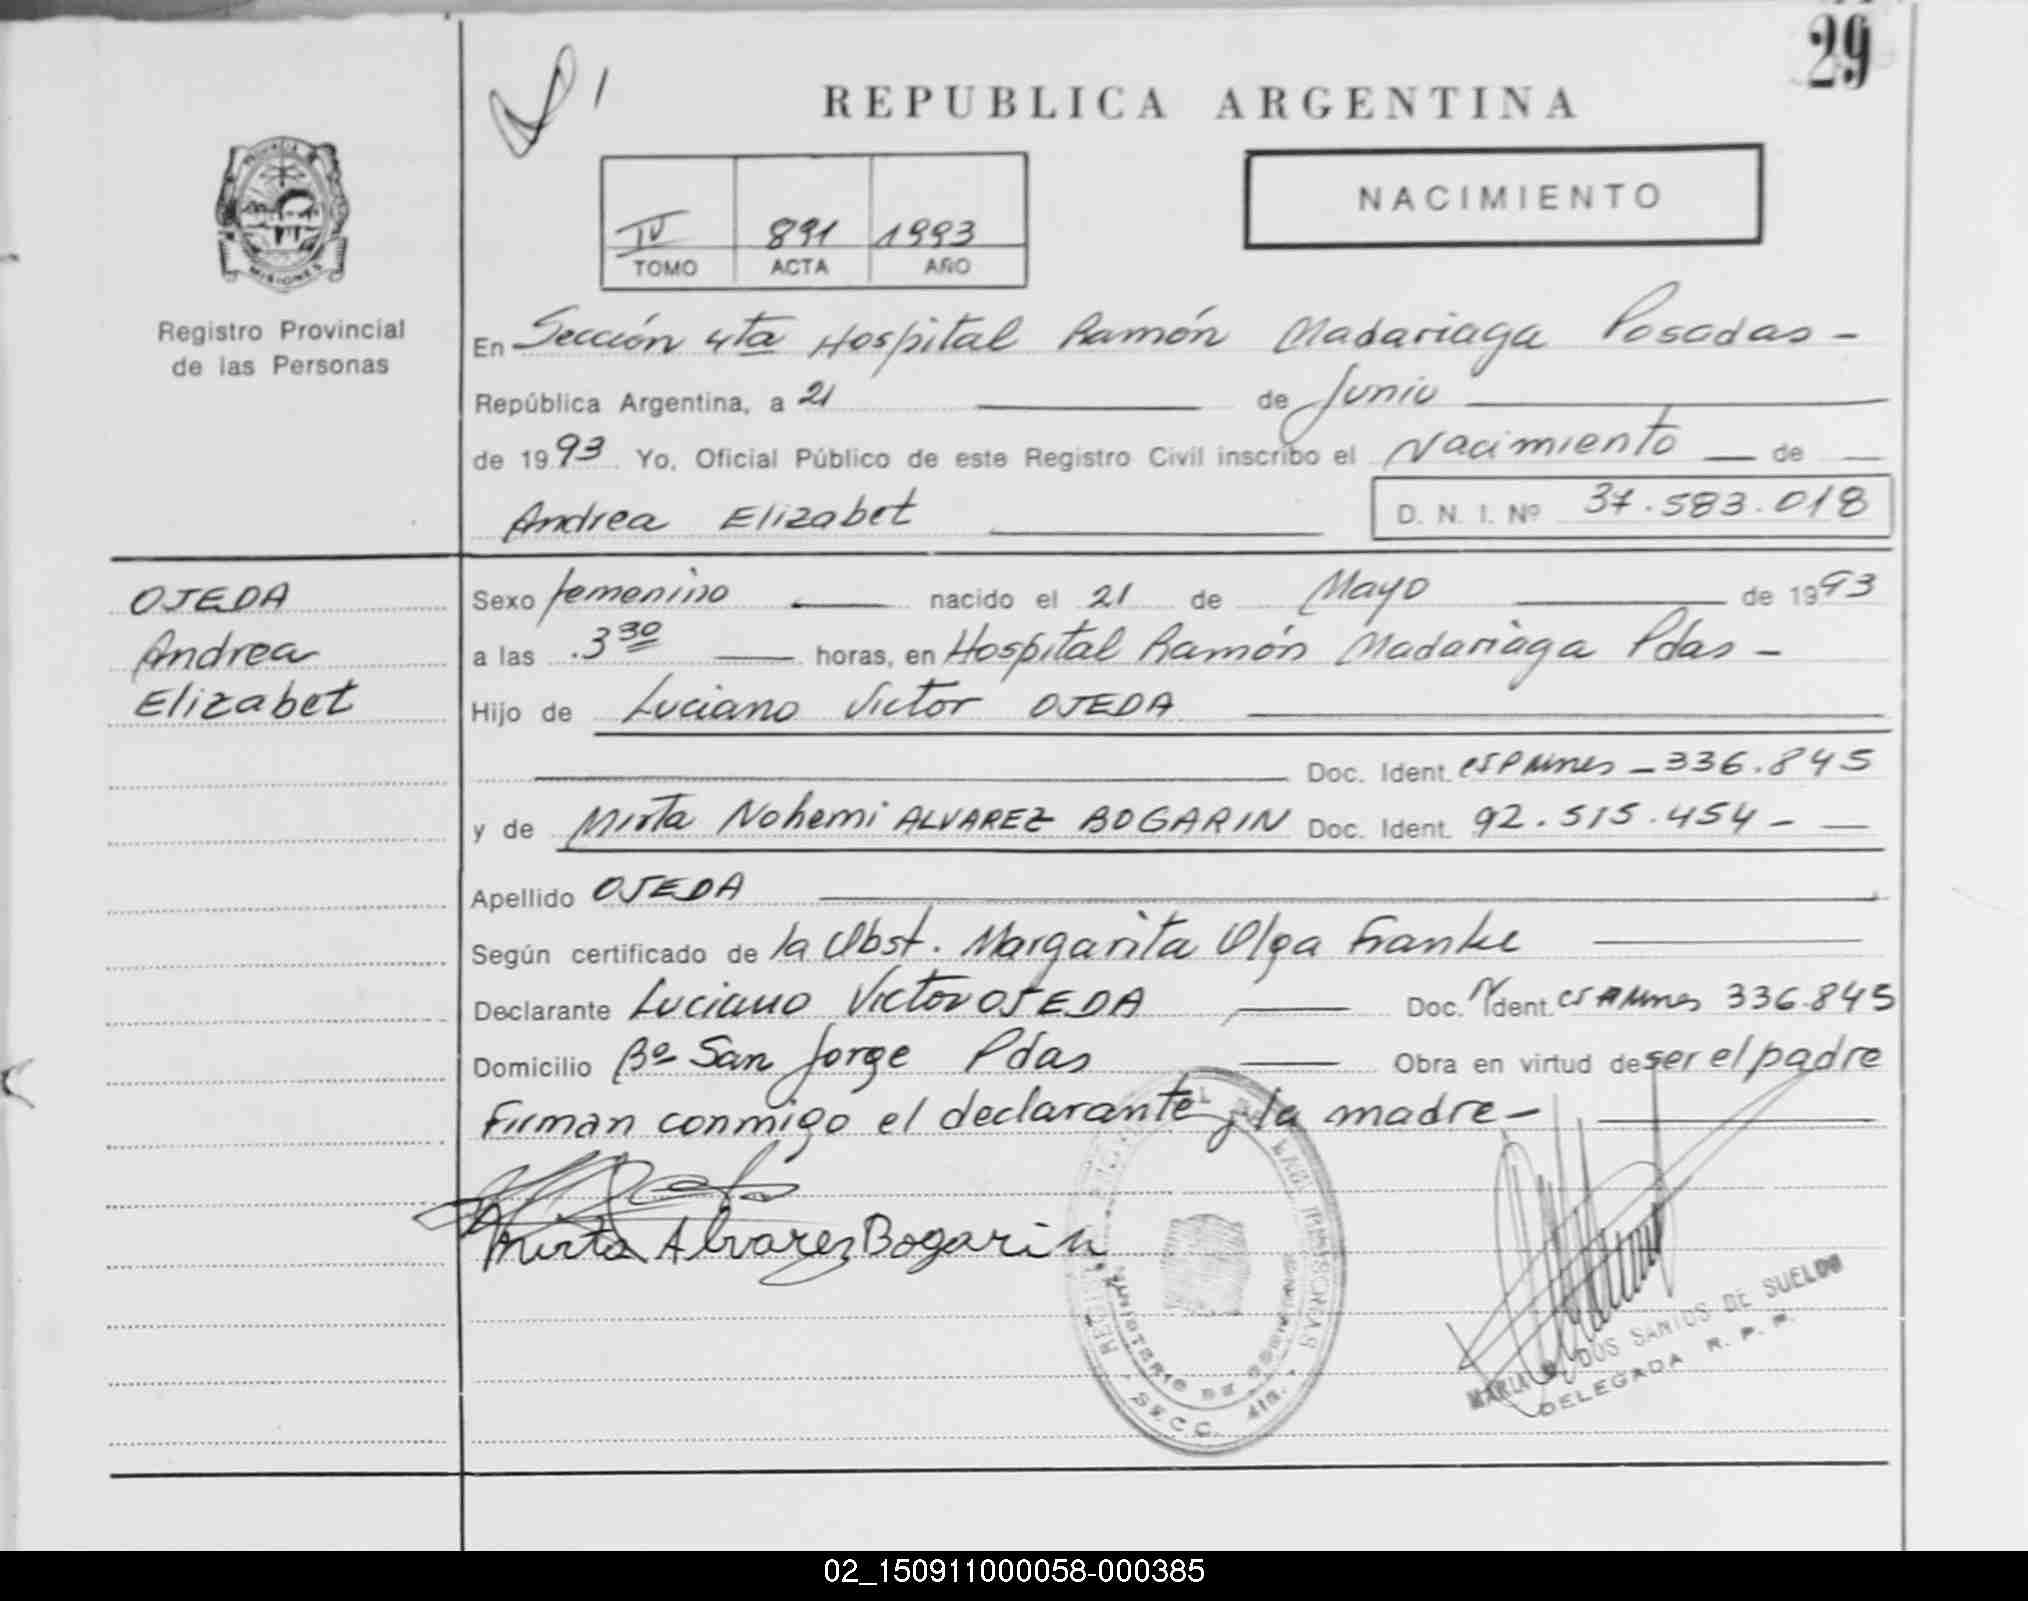 29
REPUBLICA ARGENTINA
NACIMIENTO
IV 891 1993
TOMO ACTA AÑO
MISIONES
Registro Provincial
de las Personas
En Sección 4ta Hospital Ramón Madariaga Posadas -
República Argentina, a 21 de Junio
de 1993 Yo, Oficial Público de este Registro Civil inscribo el Nacimiento de
Andrea Elizabet D. N. I. Nº 37.583.018
OJEDA
Andrea
Elizabet
Sexo femenino nacido el 21 de Mayo de 1993
a las 3 30 horas, en Hospital Ramón Madariaga Pdas -
Hijo de Luciano Victor OJEDA
Doc. Ident. - 336.845
y de Mirta Nohemi ALVAREZ BOGARIN Doc. Ident. 92.515.454 -
Apellido OJEDA
Según certificado de la Obst. Margarita Olga Franke
Declarante Luciano Victor OJEDA Doc. Ident. 336.845
Domicilio Bº San Jorge Pdas Obra en virtud de ser el padre
Firman conmigo el declarante y la madre -
Mirta Alvarez Bogarin
SECC. 4ta.
MARIA DOS SANTOS DE SUELDO
DELEGADA R. P. P.
02_150911000058-000385